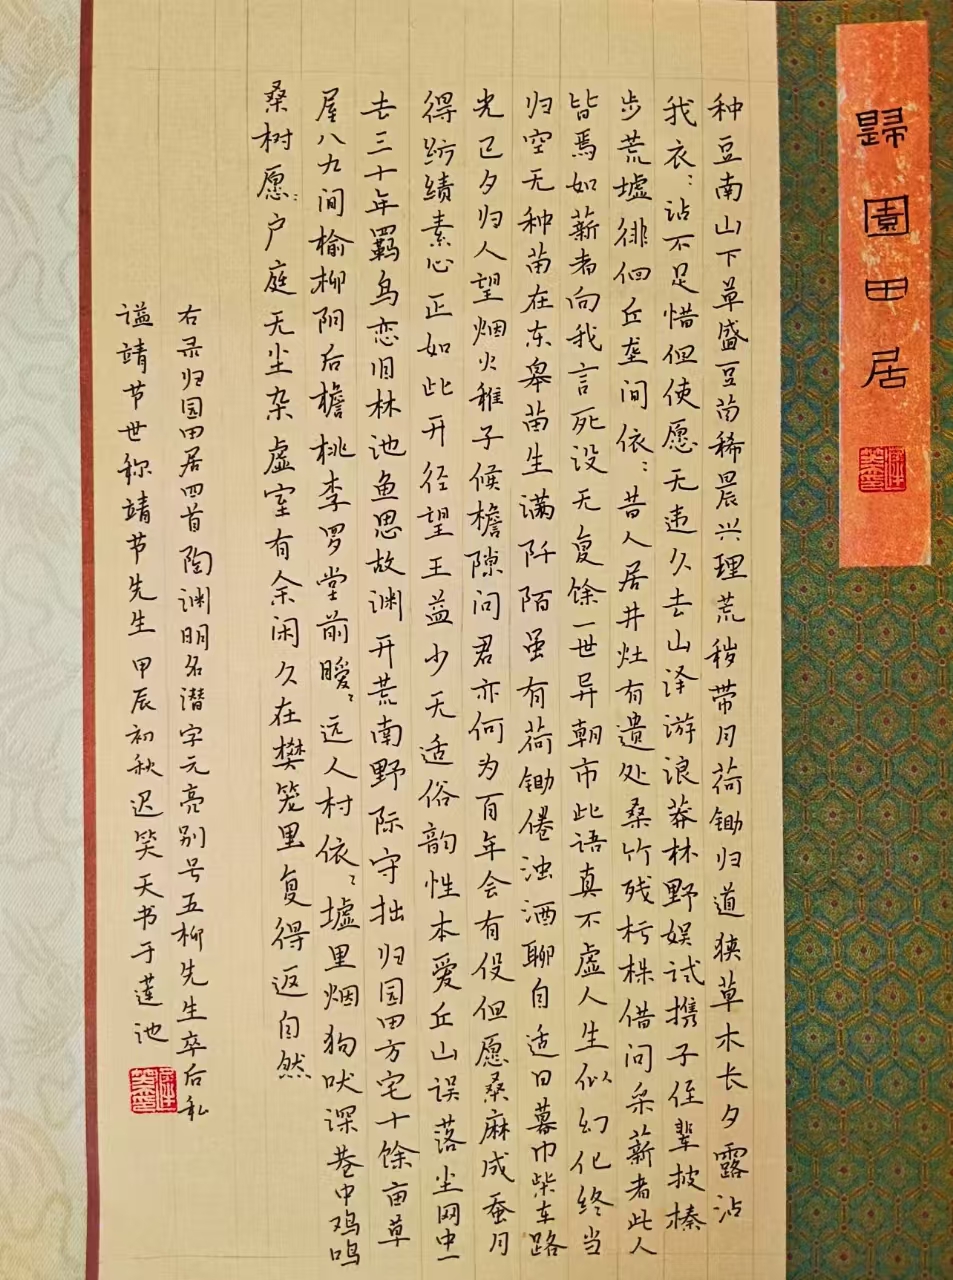 歸園田居
种豆南山下草盛豆苗稀晨兴理荒秽带月荷锄归道狭草木长夕露沾
我衣:沾不足惜但使愿无违久去山泽游浪莽林野娱试携子侄辈披榛
步荒墟徘徊丘垄间依:昔人居井灶有遗处桑竹残朽株借问采薪者此人
皆焉如薪者向我言死没无复馀一世异朝市此语真不虚人生似幻化终当
归空无种苗在东皋苗生满阡陌虽有荷锄倦浊酒聊自适日暮巾柴车路
光已夕归人望烟火稚子候檐隙问君亦何为百年会有役但愿桑麻成蚕月
得纺绩素心正如此开径望王益少无适俗韵性本爱丘山误落尘网中一
去三十年羁鸟恋旧林池鱼思故渊开荒南野际守拙归园田方宅十馀亩草
屋八九间榆柳阴后檐桃李罗堂前暧:远人村依:墟里烟狗吠深巷中鸡鸣
桑树愿:户庭无尘杂虚室有余闲久在樊笼里复得返自然
右录归园田居四首陶渊明名潜字元亮别号五柳先生卒后私
谥靖节世称靖节先生甲辰初秋迟笑天书于莲池